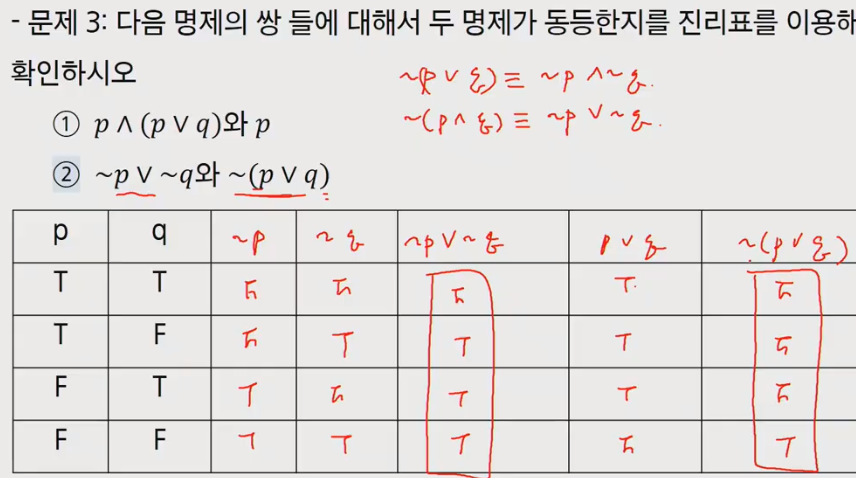 - 문제 3: 다음 명제의 쌍 들에 대해서 두 명제가 동등한지를 진리표를 이용해
확인하시오
~(p ∨ q) ≡ ~p ∧ ~q.
① p ∧ (p ∨ q)와 p
~(p ∧ q) ≡ ~p ∨ ~q.
② ~p ∨ ~q와 ~(p ∨ q)
p q ~p ~q ~p ∨ ~q p ∨ q ~(p ∨ q)
T T F F F T F
T F F T T T F
F T T F T T F
F F T T T F T